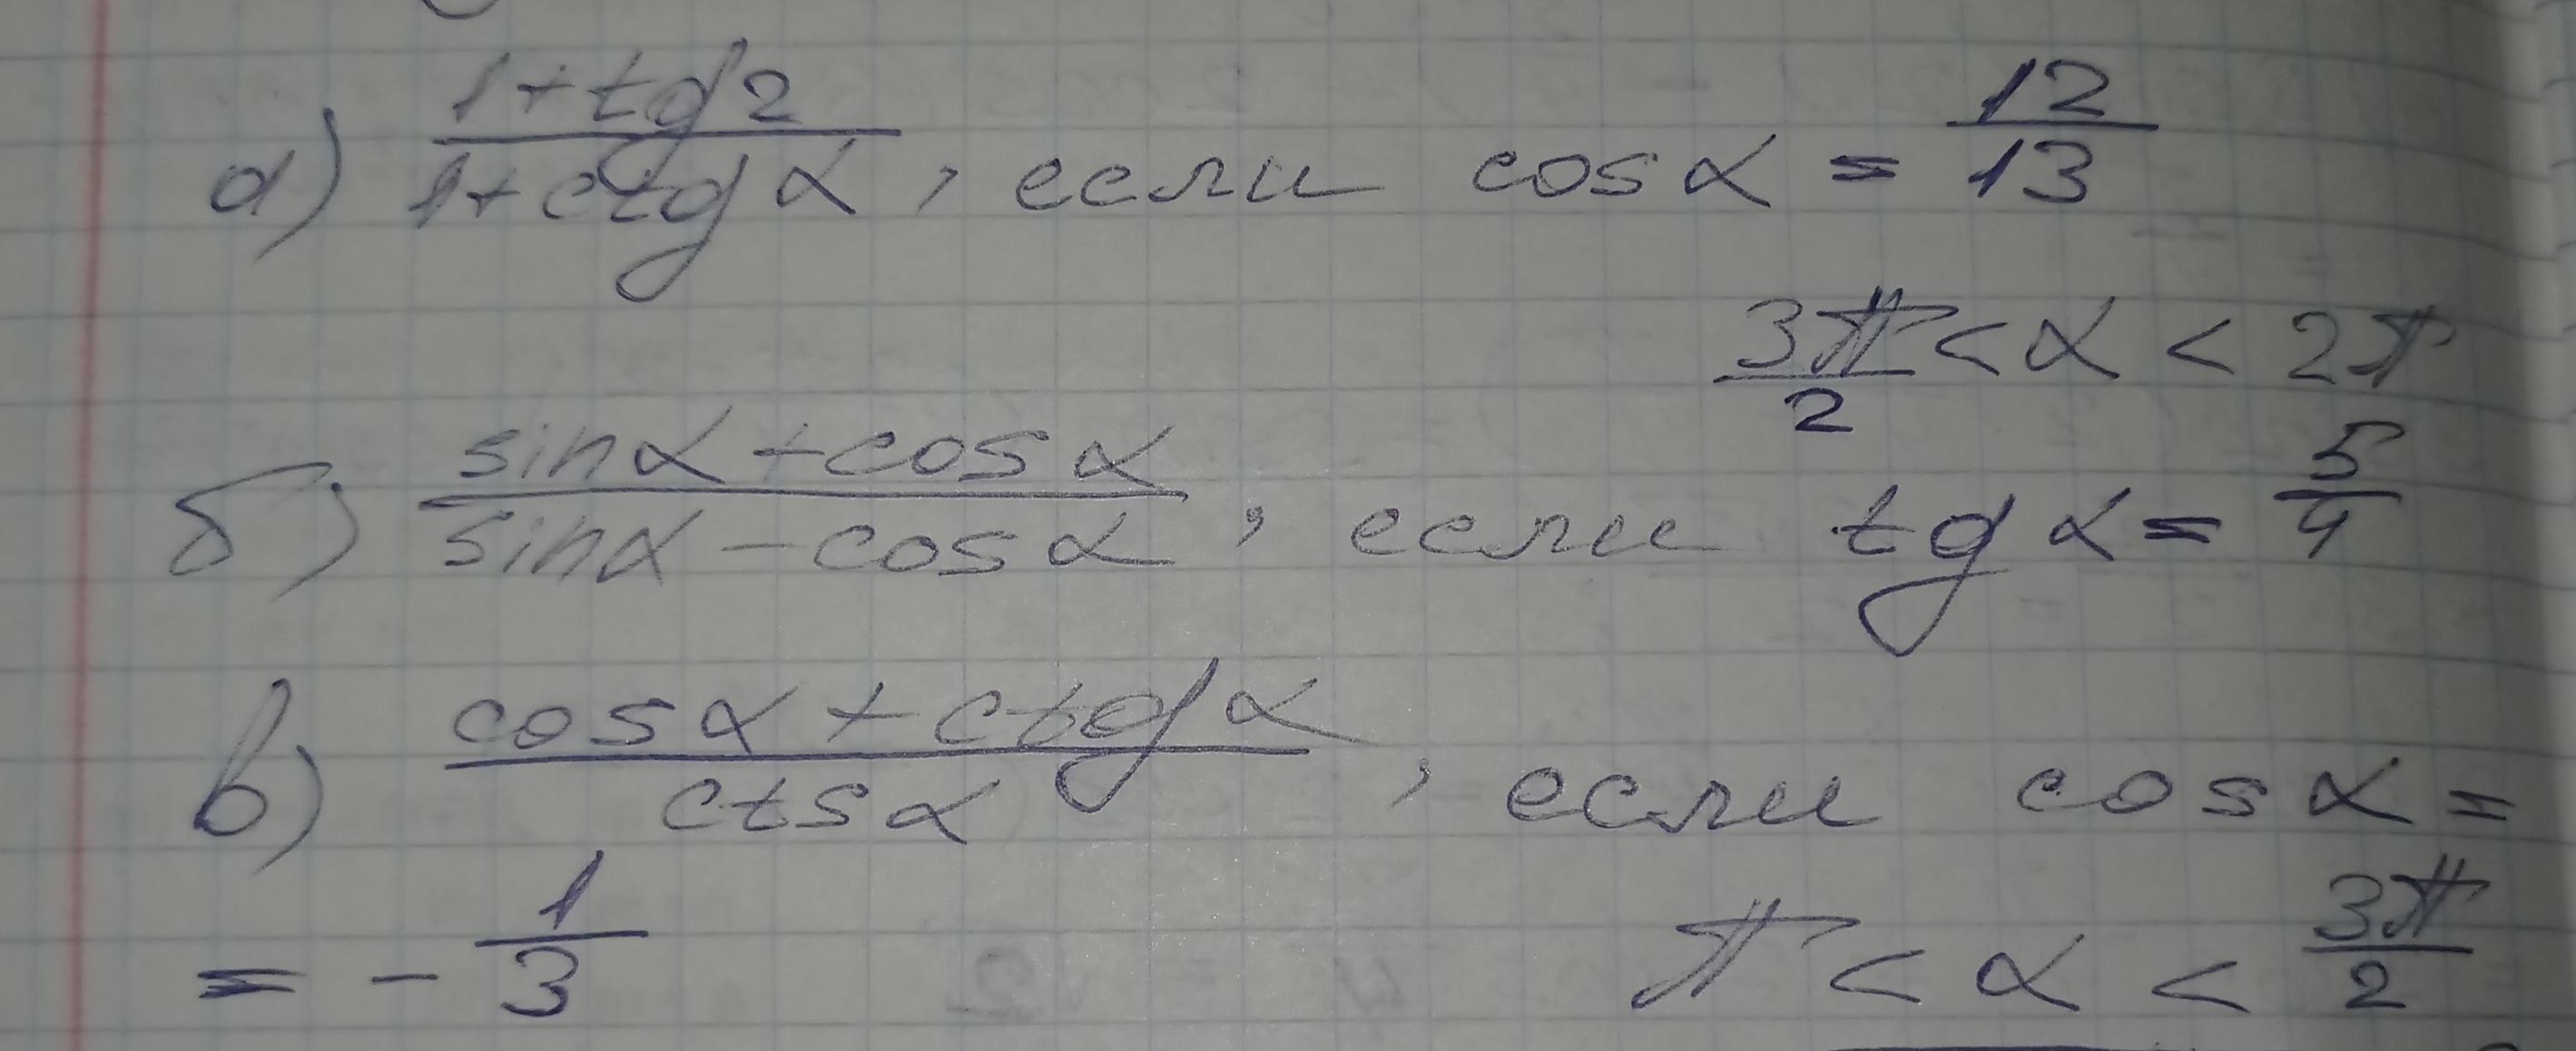 а) (1+tg2)/(1+ctgα), если cosα = 12/13
3π/2 < α < 2π
б) (sinα+cosα)/(sinα-cosα), если tgα = 5/4
в) (cosα+ctgα)/(ctsα), если cosα =
= -1/3 π < α < 3π/2